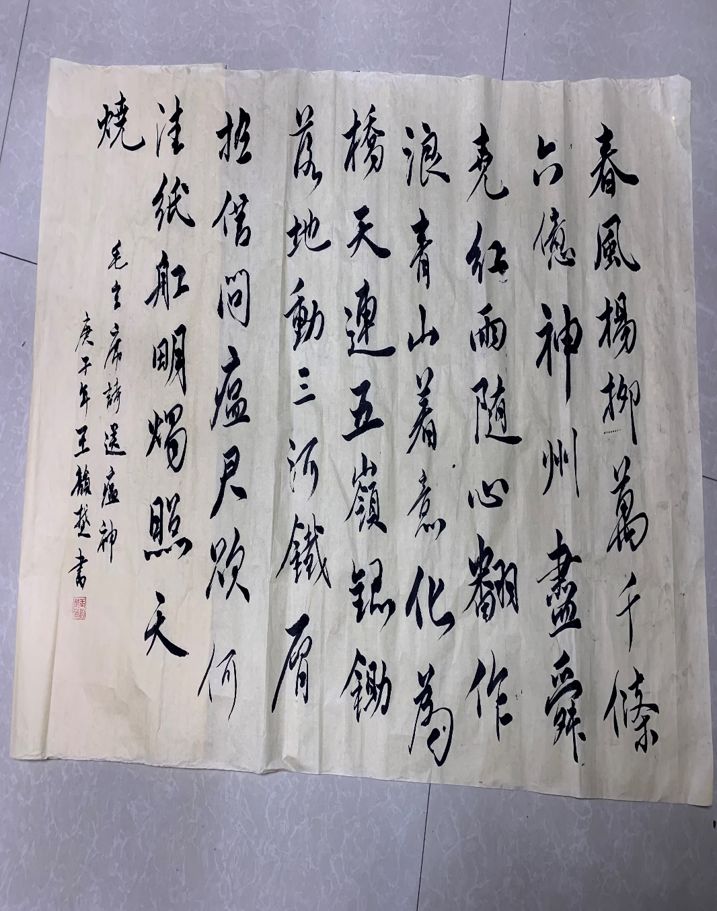 春風楊柳萬千條
六億神州盡舜
堯紅雨隨心翻作
浪青山着意化為
橋天連五嶺銀鋤
落地動三河鐵臂
搖借問瘟君欲何
往紙船明燭照天
燒
毛主席詩送瘟神
庚子年王 書